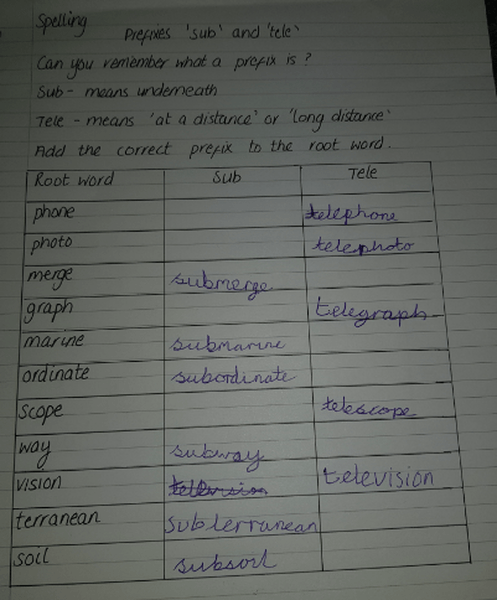 Spelling Prefixes 'sub' and 'tele'
Can you remember what a prefix is?
Sub - means underneath
Tele - means 'at a distance' or 'long distance'
Add the correct prefix to the root word.
Root word Sub Tele
phone telephone
photo telephoto
merge submerge
graph telegraph
marine submarine
ordinate subordinate
scope telescope
way subway
vision television television
terranean subterranean
soil subsoil